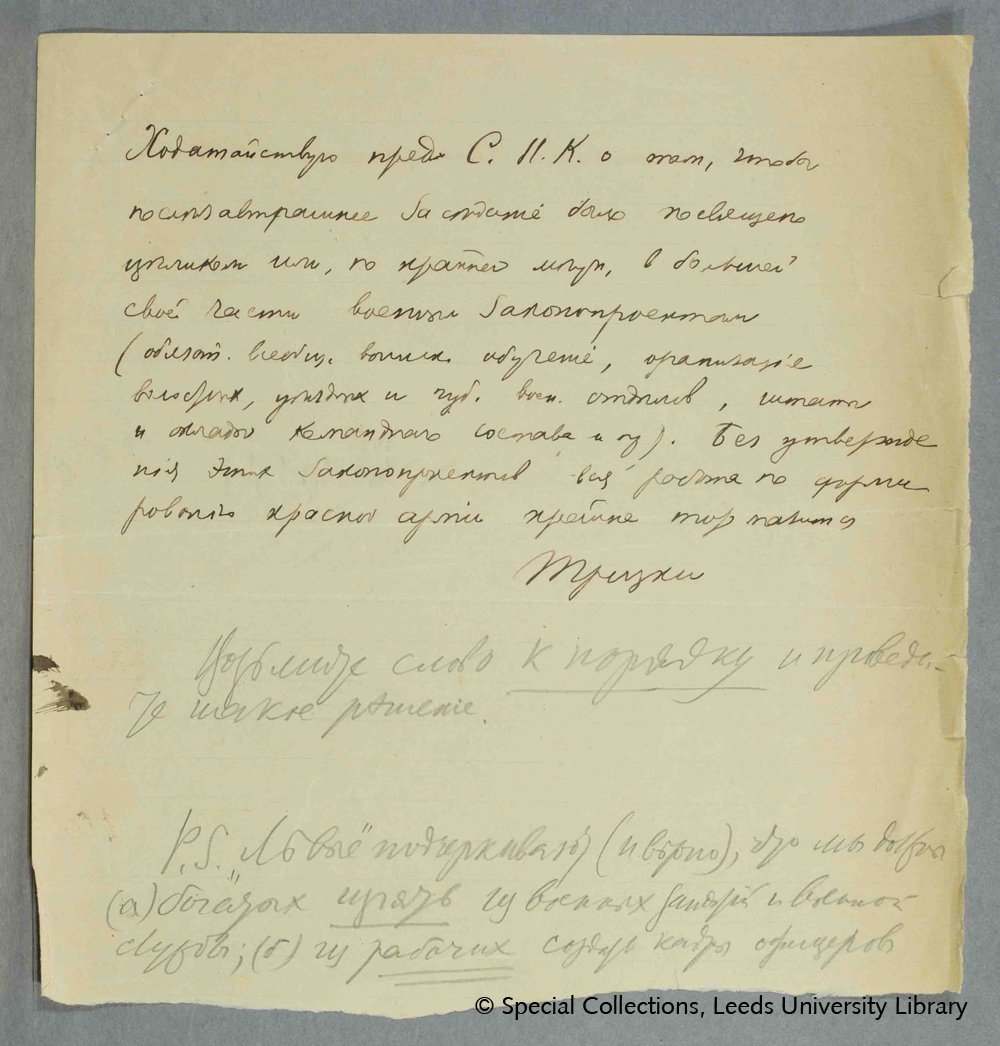 Ходатайствую пред С. Н. К. о том, чтобы
послѣзавтрашнее засѣданіе было посвящено
цѣликом или, по крайней мѣрѣ, в большей
своей части военным законопроектам
(обязат. всеобщ. воинск. обученіе, организаціе
волостных, уѣздных и губ. воен. отдѣлов, штаты
и оклады командного состава и пр). Без утвержде
нія этих законопроектов вся работа по форми
рованію красной арміи крайне тормозится
Троцкий
Возьмите слово к порядку и проведи-
те такое рѣшеніе.
P.S. "Лѣвые" подчеркивают (и вѣрно), что мы должны
(а) богатых изъять из военных занятій и военной
службы; (б) из рабочих создать кадры офицеров
© Special Collections, Leeds University Library